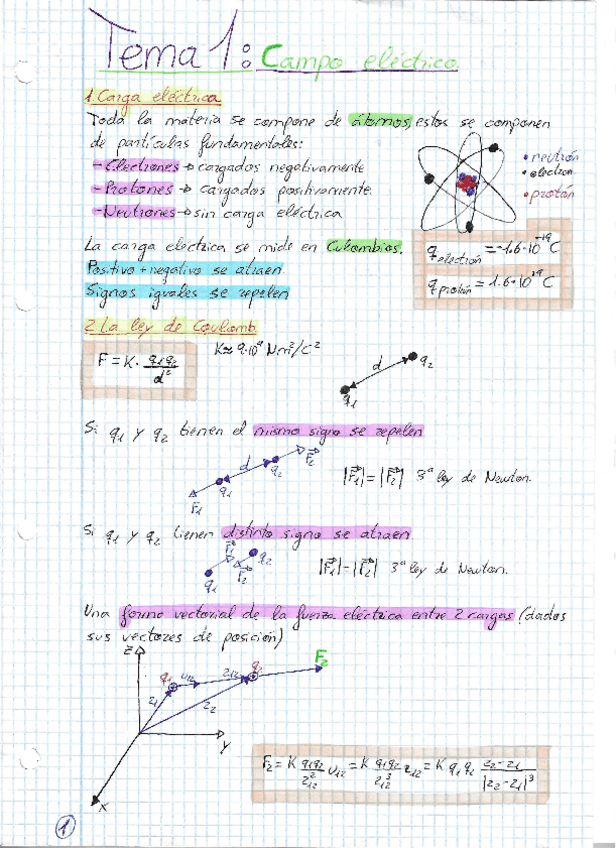 Tema 1: Campo eléctrico.
1. Carga eléctrica
Toda la materia se compone de átomos, estos se componen
de partículas fundamentales:
- Electrones → cargados negativamente
- Protones → cargados positivamente.
- Neutrones → sin carga eléctrica
• neutrón
• electrón
• protón
La carga eléctrica se mide en Culombios.
Positivo + negativo se atraen
Signos iguales se repelen
q electrón = -1.6·10⁻¹⁹ C
q protón = 1.6·10⁻¹⁹ C
2. La ley de Coulomb
F = K · q₁q₂/d²
K ≈ 9·10⁹ N·m²/C²
d
q₂
q₁
Si q₁ y q₂ tienen el mismo signo se repelen
F₂
d
q₂
q₁
F₁
|F₁| = |F₂| 3ª ley de Newton.
Si q₁ y q₂ tienen distinto signo se atraen
F₁
q₂
F₂
q₁
|F₁| = |F₂| 3ª ley de Newton.
Una forma vectorial de la fuerza eléctrica entre 2 cargas (dados
sus vectores de posición)
z
q₁
u₁₂
r₁₂
q₂
F₂
r₁
r₂
y
x
F₂ = K q₁q₂/r₁₂² u₁₂ = K q₁q₂/r₁₂³ r₁₂ = K q₁ q₁ r₂-r₁/|r₂-r₁|³
1